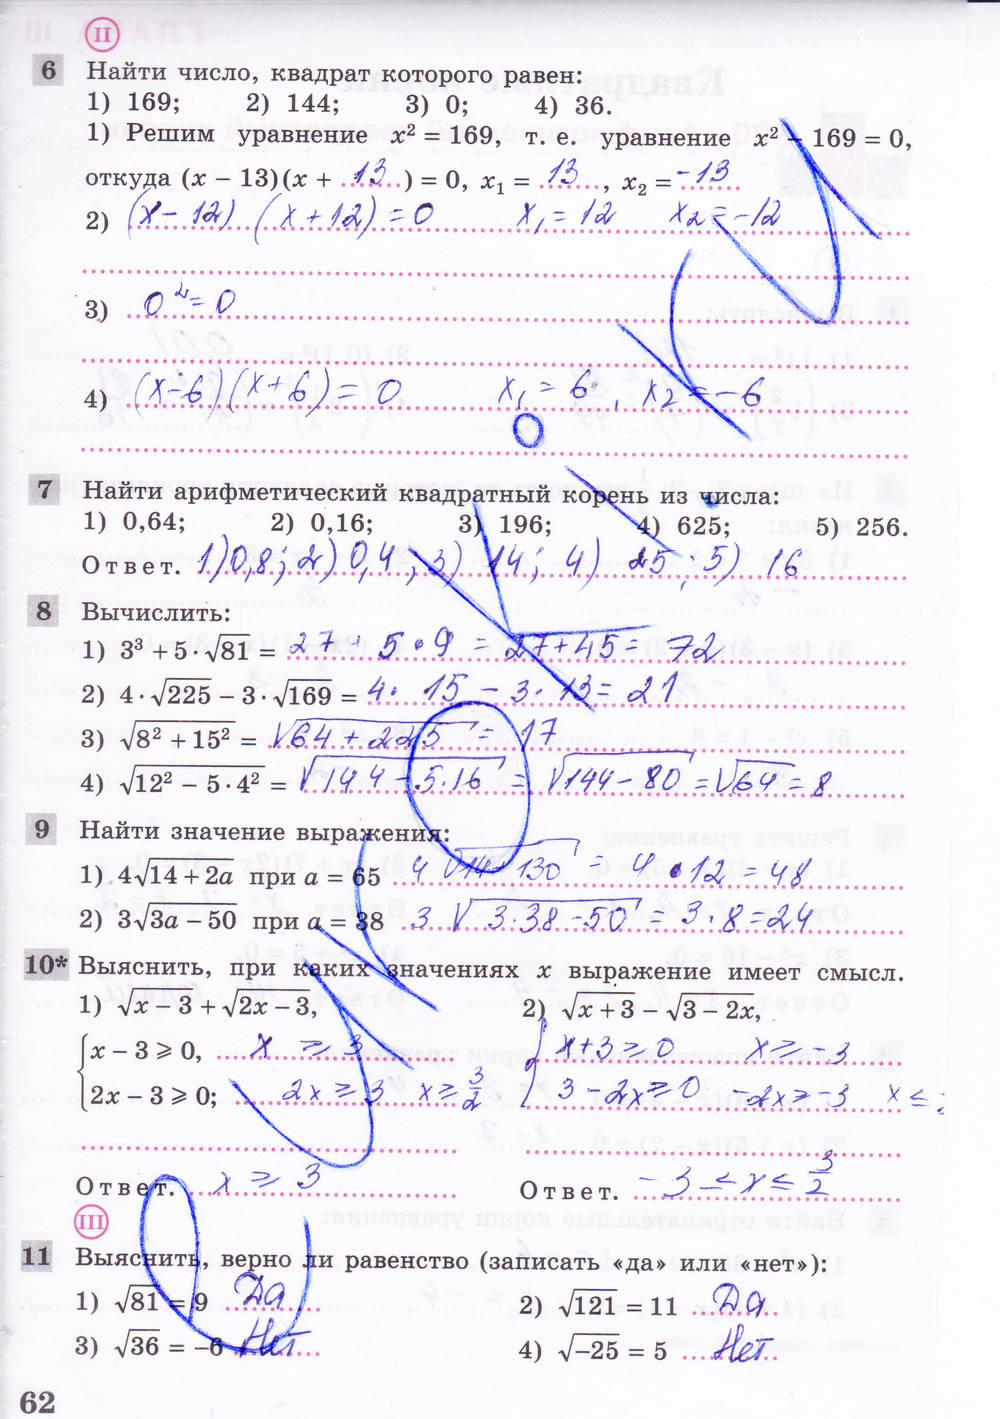 II
6 Найти число, квадрат которого равен:
1) 169; 2) 144; 3) 0; 4) 36.
1) Решим уравнение x² = 169, т. е. уравнение x² − 169 = 0,
откуда (x − 13)(x + 13) = 0, x₁ = 13, x₂ = −13
2) (x − 12) (x + 12) = 0 x₁ = 12 x₂ = −12
3) 0² = 0
4) (x − 6)(x + 6) = 0 x₁ = 6, x₂ = −6
7 Найти арифметический квадратный корень из числа:
1) 0,64; 2) 0,16; 3) 196; 4) 625; 5) 256.
Ответ. 1) 0,8; 2) 0,4; 3) 14; 4) 25; 5) 16
8 Вычислить:
1) 3³ + 5 · √81 = 27 + 5 · 9 = 27 + 45 = 72
2) 4 · √225 − 3 · √169 = 4 · 15 − 3 · 13 = 21
3) √(8² + 15²) = √(64 + 225) = 17
4) √(12² − 5 · 4²) = √(144 − 5 · 16) = √(144 − 80) = √64 = 8
9 Найти значение выражения:
1) 4√(14 + 2a) при a = 65 4√(14 + 130) = 4 · 12 = 48
2) 3√(3a − 50) при a = 38 3√(3 · 38 − 50) = 3 · 8 = 24
10* Выяснить, при каких значениях x выражение имеет смысл.
1) √(x − 3) + √(2x − 3), 2) √(x + 3) − √(3 − 2x),
{ x − 3 ⩾ 0, x ⩾ 3 { x + 3 ⩾ 0 x ⩾ −3
2x − 3 ⩾ 0; 2x ⩾ 3 x ⩾ 3/2 3 − 2x ⩾ 0 −2x ⩾ −3 x ≤
Ответ. x ⩾ 3 Ответ. −3 ≤ x ≤ 3/2
III
11 Выяснить, верно ли равенство (записать «да» или «нет»):
1) √81 = 9 Да 2) √121 = 11 Да
3) √36 = −6 Нет 4) √−25 = 5 Нет
62